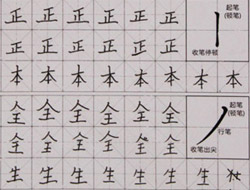 正 正 正 正 正 正
正 正 正 正 正 正
本 本 本 本 本 本 本 本
起笔
(顿笔)
收笔停顿
全 全 全 全 全 全
全 全 全 全 全 全
生 生 生 生 生 生 生
起笔
(顿笔)
行笔
收笔出尖